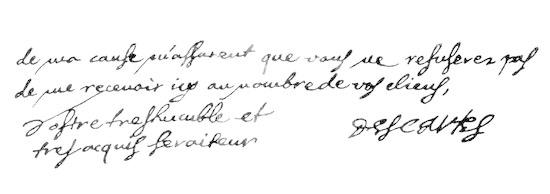 de ma cause m'assurent que vous ne refuserez pas
de me recevoir icy au nombre de vos cliens,
Vostre treshumble et
tresacquis serviteur
Descartes